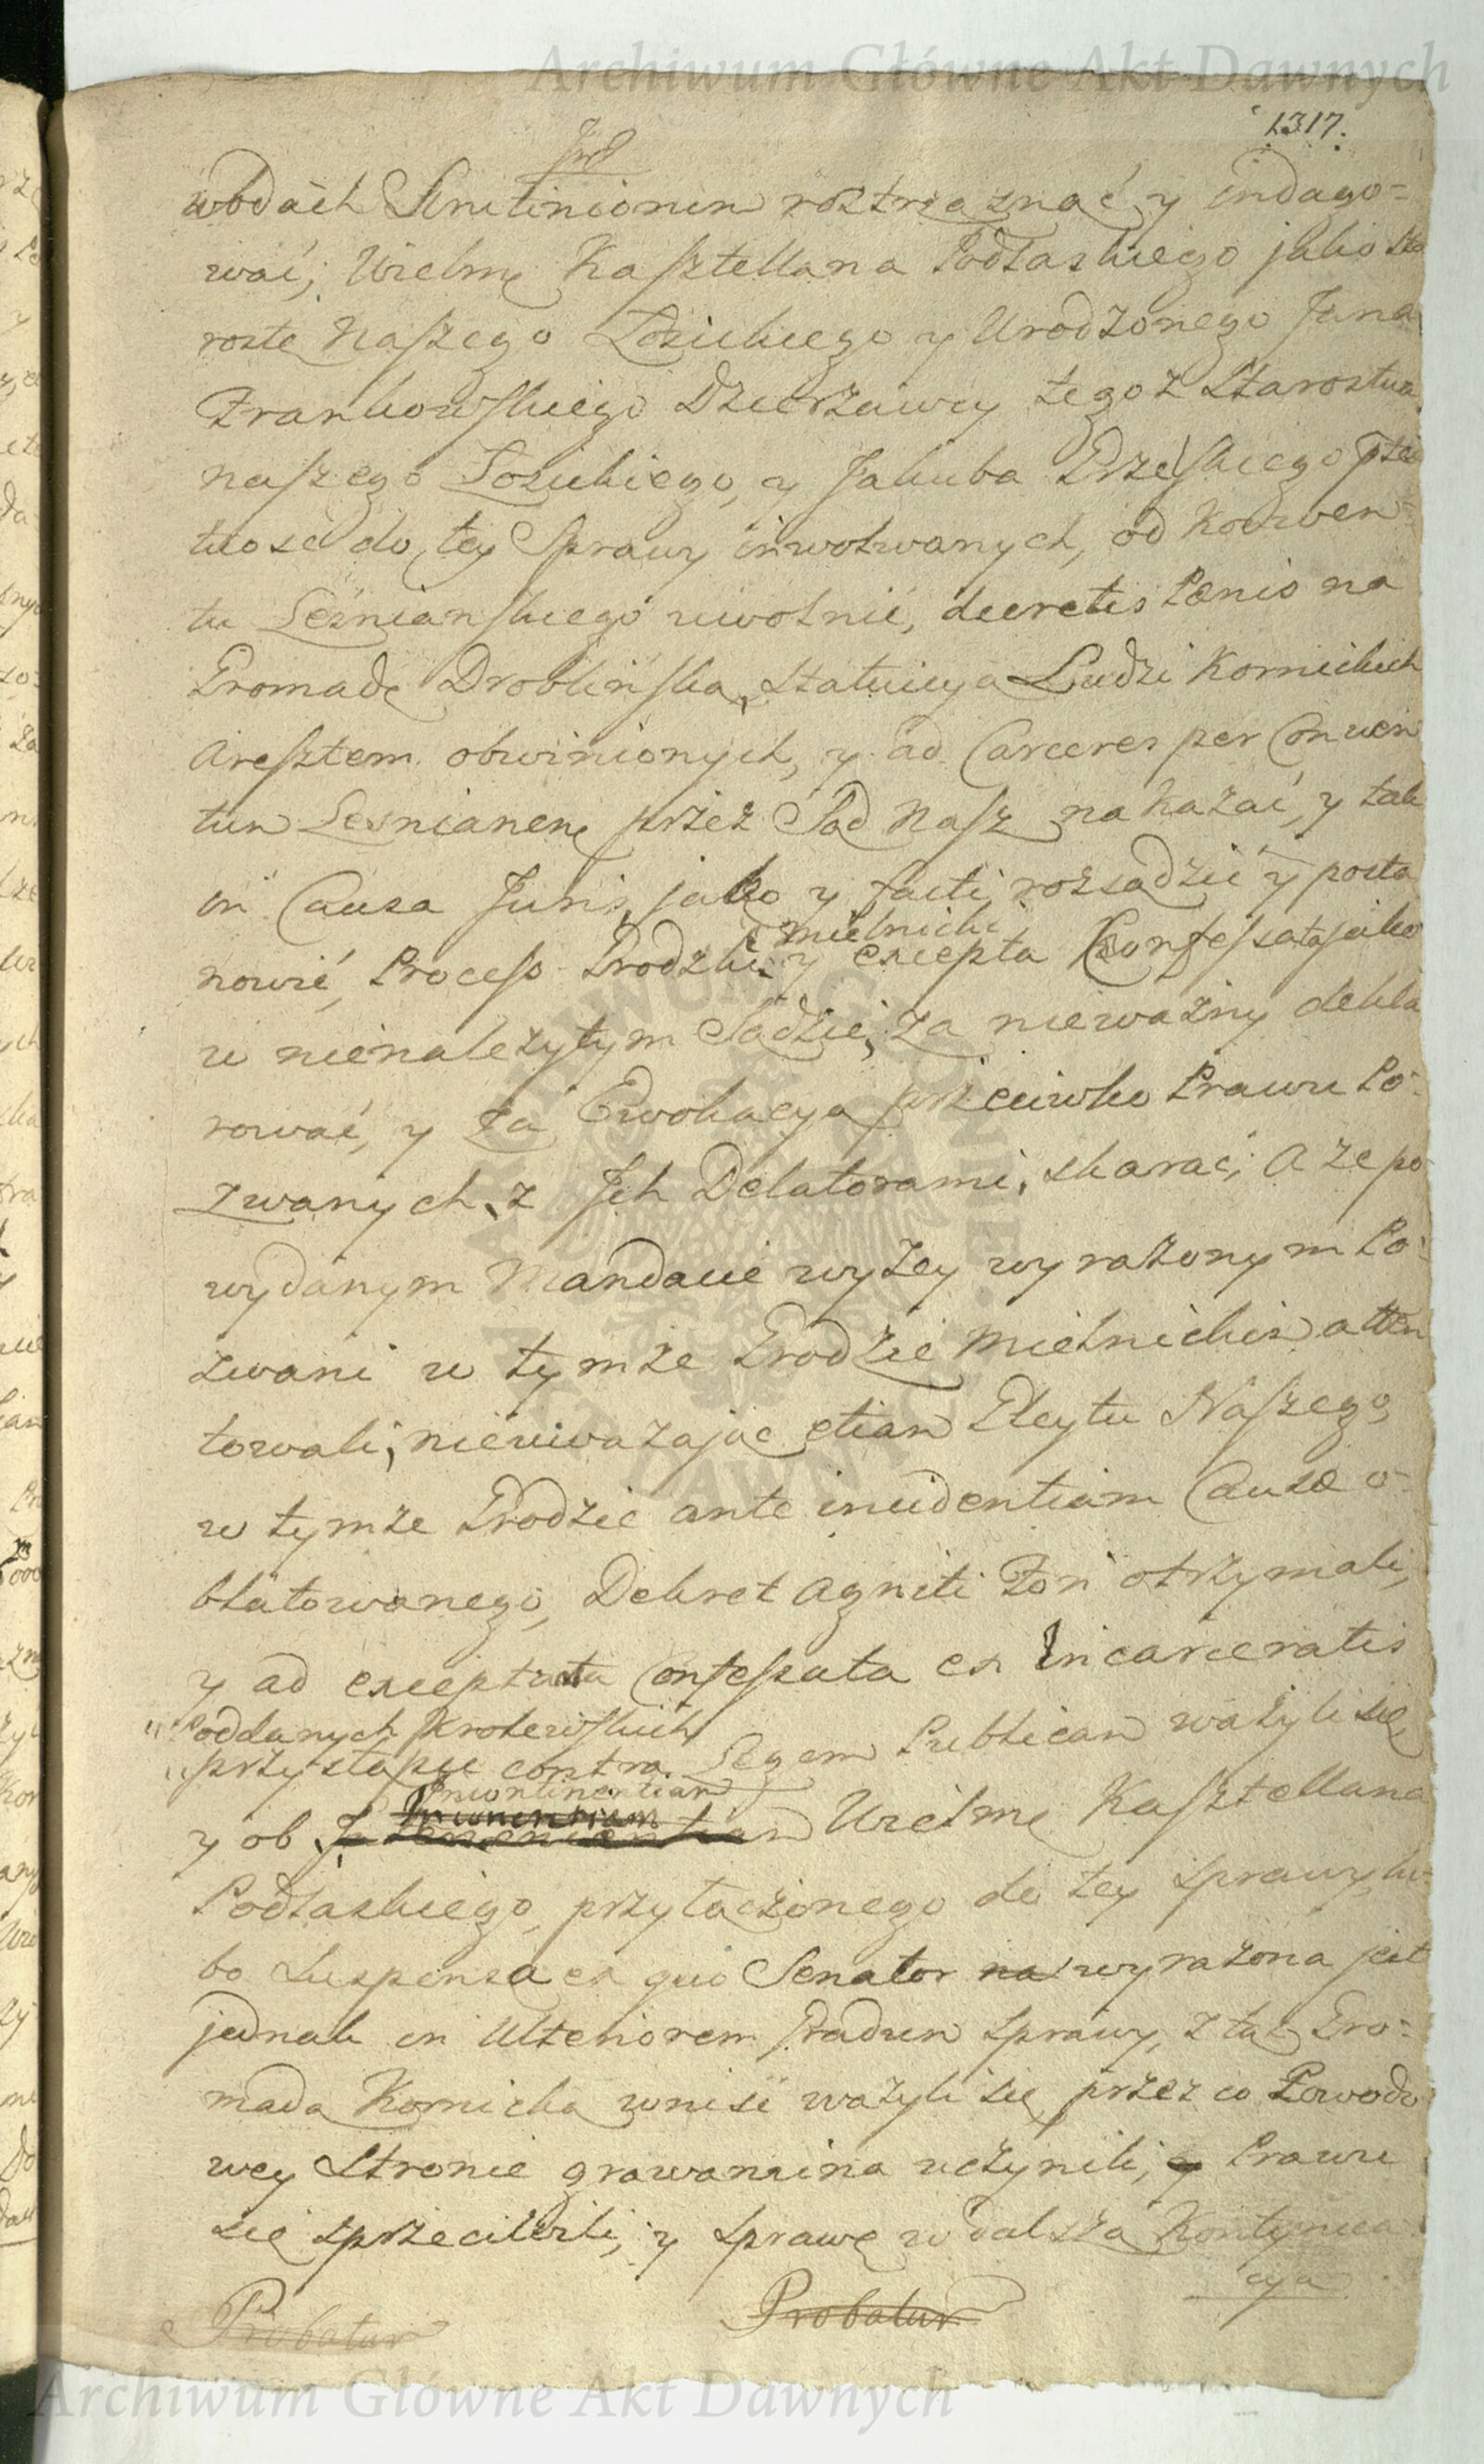 Archiwum Główne Akt Dawnych
1317.
wodach Scrutinionem roztrząsnąć y indago=
wać; Wielmę Kasztellana Podlaskiego jako Sta
rostę Naszego Łosickiego y Urodzonego Jana
Frankowskiego Dzierżawcy tegoż Starostwa
naszego Łosickiego, y Jakuba Grzeskiego
do tey Sprawy inwolwanych, od Konwen=
tu Leśnianskiego uwolnić, decretis Pænis na
Gromadę Droblińską, Statucyą Ludzi Kornickich
Aresztem obwinionych, y ad Carceres per Conven
tum Lesnianenę przez Sąd Nasz nakazać, y tak
in Causa Juris, jako y facti rozsądzić y posta
mielnicki
nowić, Process Grodzki y excepta Confessata jako
w nienależytym Sądzie, za nieważny dekla
rować, y za Ewokacyą przeciwko Prawu Po=
zwanych, z Jch Delatorami, skarać; A że po
wydanym Mandacie wyżey wyrażonym Po=
zwani w tymże Grodzie Mielnickim atten
towali, nieuważając etiam Gleytu Naszego,
w tymże Grodzie ante incidentiam Causæ o=
blatowanego, Dekret agniti Fori otrzymali,
y ad excepta Confessata ex Incarceratis
"Poddanych Krolewskich
"przystąpić contra Legem Publicam ważyli się,
Incontinentiam
y ob Wielmę Kasztellana
Podlaskiego, przytączonego do tey Sprawy, lu=
bo Suspensa ex quo Senator na wyrażona jest
jednak in Ulteriorem Gradum Sprawy, z tąż Gro=
madą Kornicką wniść ważyli się, przez co Powodo
wey Stronie grawamina uczynili, y Prawu
się sprzeciwili, y Sprawę w dalszą Kontynua
cyą
Probatur Probatur
Archiwum Główne Akt Dawnych